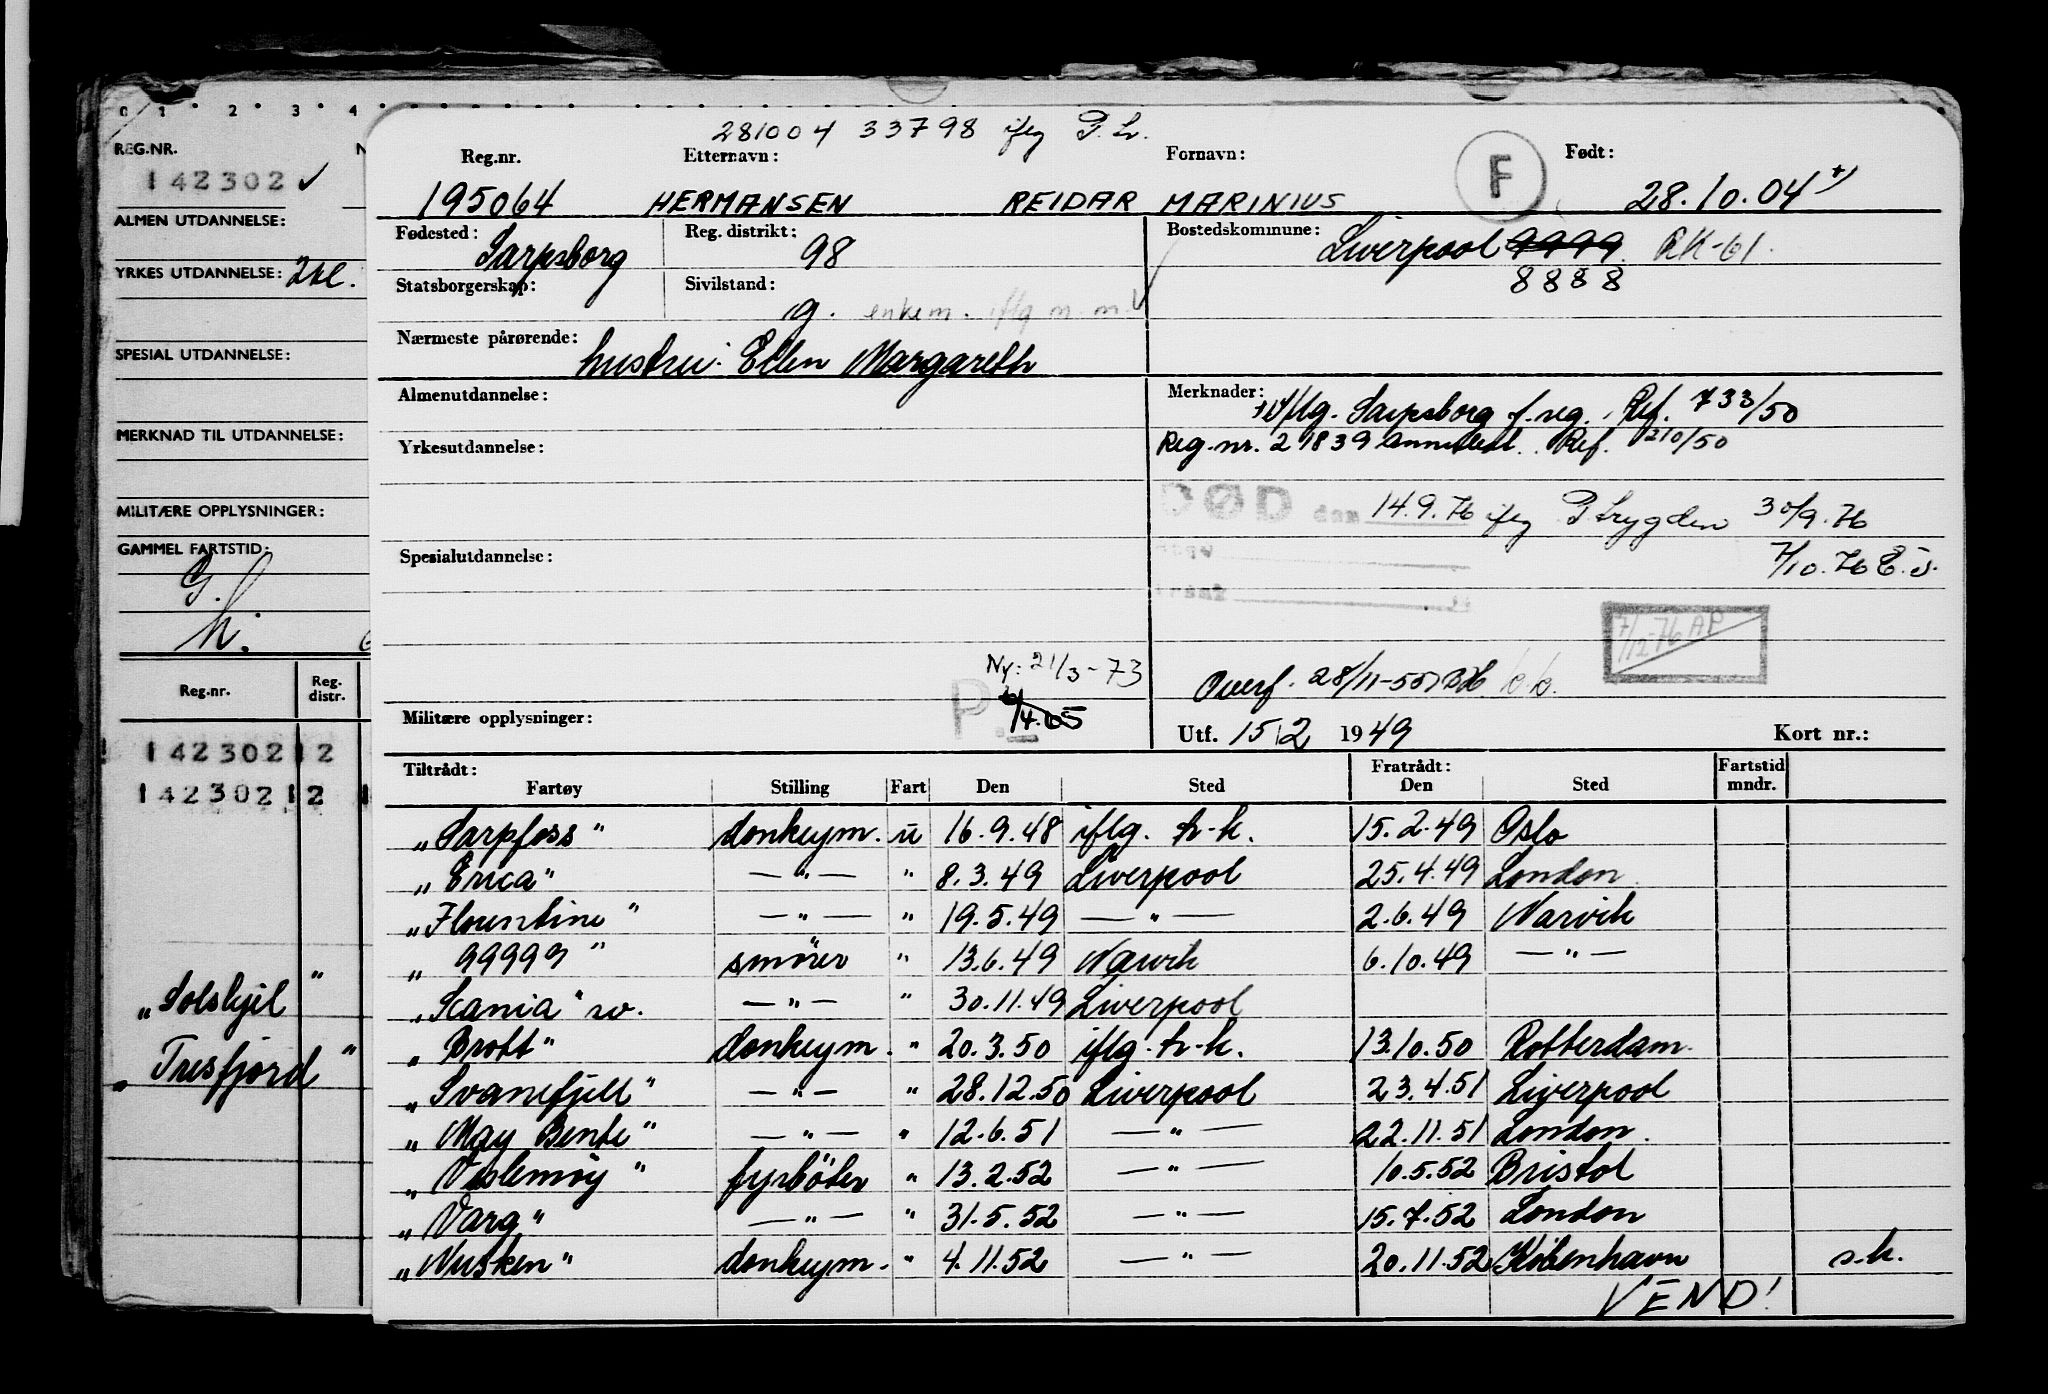 0 1 2 3 4
REG.NR. N
142302 ✓
ALMEN UTDANNELSE:
YRKES UTDANNELSE:
SPESIAL UTDANNELSE:
MERKNAD TIL UTDANNELSE:
MILITÆRE OPPLYSNINGER:
GAMMEL FARTSTID:
G.
h.
Reg.nr. Reg. distr.
142302 2
142302 2 1
„Solskjel"
„Tresfjord"
281004 33798 ifg P.tr.
Reg.nr. Etternavn: Fornavn: F Født:
195064 HERMANSEN REIDAR MARINIUS 28.10.04 +)
Fødested: Sarpsborg Reg. distrikt: 98 Bostedskommune: Liverpool 9999 RK-61.
8888
Statsborgerskap: Sivilstand: g. enkem. iflg m.m.
Nærmeste pårørende: hustru: Ellen Margareth
Almenutdannelse: Merknader: +) Iflg. Sarpsborg f.reg. Ref. 733/50
Yrkesutdannelse: Reg.nr. 21839 annullert. Ref. 210/50
DØD den 14.9.76 ifg P.trygden 30/9.76
Spesialutdannelse: 7/10.76 E.S.
7/12-76 AP
Ny: 21/3-73
Overf. 28/11-55
P.
Militære opplysninger: /4.65 Utf. 15/2 1949 Kort nr.:
Tiltrådt: Fratrådt: Fartstid
Fartøy Stilling Fart Den Sted Den Sted mndr.
„Sarpfoss" donkeym. u 16.9.48 iflg. h-k. 15.2.49 Oslo
„Erica" —"— " 8.3.49 Liverpool 25.4.49 London
„Florentine" —"— " 19.5.49 —"— 2.6.49 Narvik
„99999" smører " 13.6.49 Narvik 6.10.49 —"—
„Scania" sv. —"— " 30.11.49 Liverpool
„Brott" donkeym. " 20.3.50 iflg. h-k. 13.10.50 Rotterdam
„Svanefjell" —"— " 28.12.50 Liverpool 23.4.51 Liverpool
„May Bente" —"— " 12.6.51 —"— 22.11.51 London.
„Veslemøy" fyrbøter " 13.2.52 —"— 10.5.52 Bristol
„Varg" —"— " 31.5.52 —"— 15.7.52 London
„Nusken" donkeym. " 4.11.52 —"— 20.11.52 København s.k.
VEND!